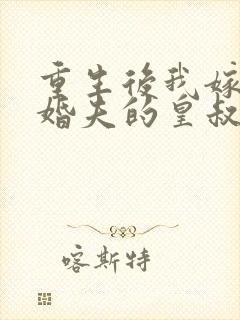 重生後我嫁
婚夫的皇叔
喀斯特